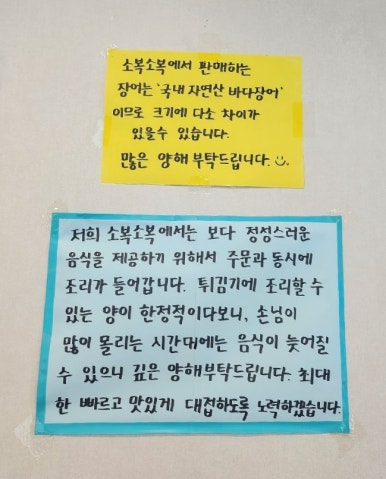 소복소복에서 판매하는
장어는 '국내 자연산 바다장어'
이므로 크기에 다소 차이가
있을수 있습니다.
많은 양해 부탁드립니다.
저희 소복소복에서는 보다 정성스러운
음식을 제공하기 위해서 주문과 동시에
조리가 들어갑니다. 튀김기에 조리할 수
있는 양이 한정적이다보니, 손님이
많이 몰리는 시간대에는 음식이 늦어질
수 있으니 깊은 양해부탁드립니다. 최대
한 빠르고 맛있게 대접하도록 노력하겠습니다.